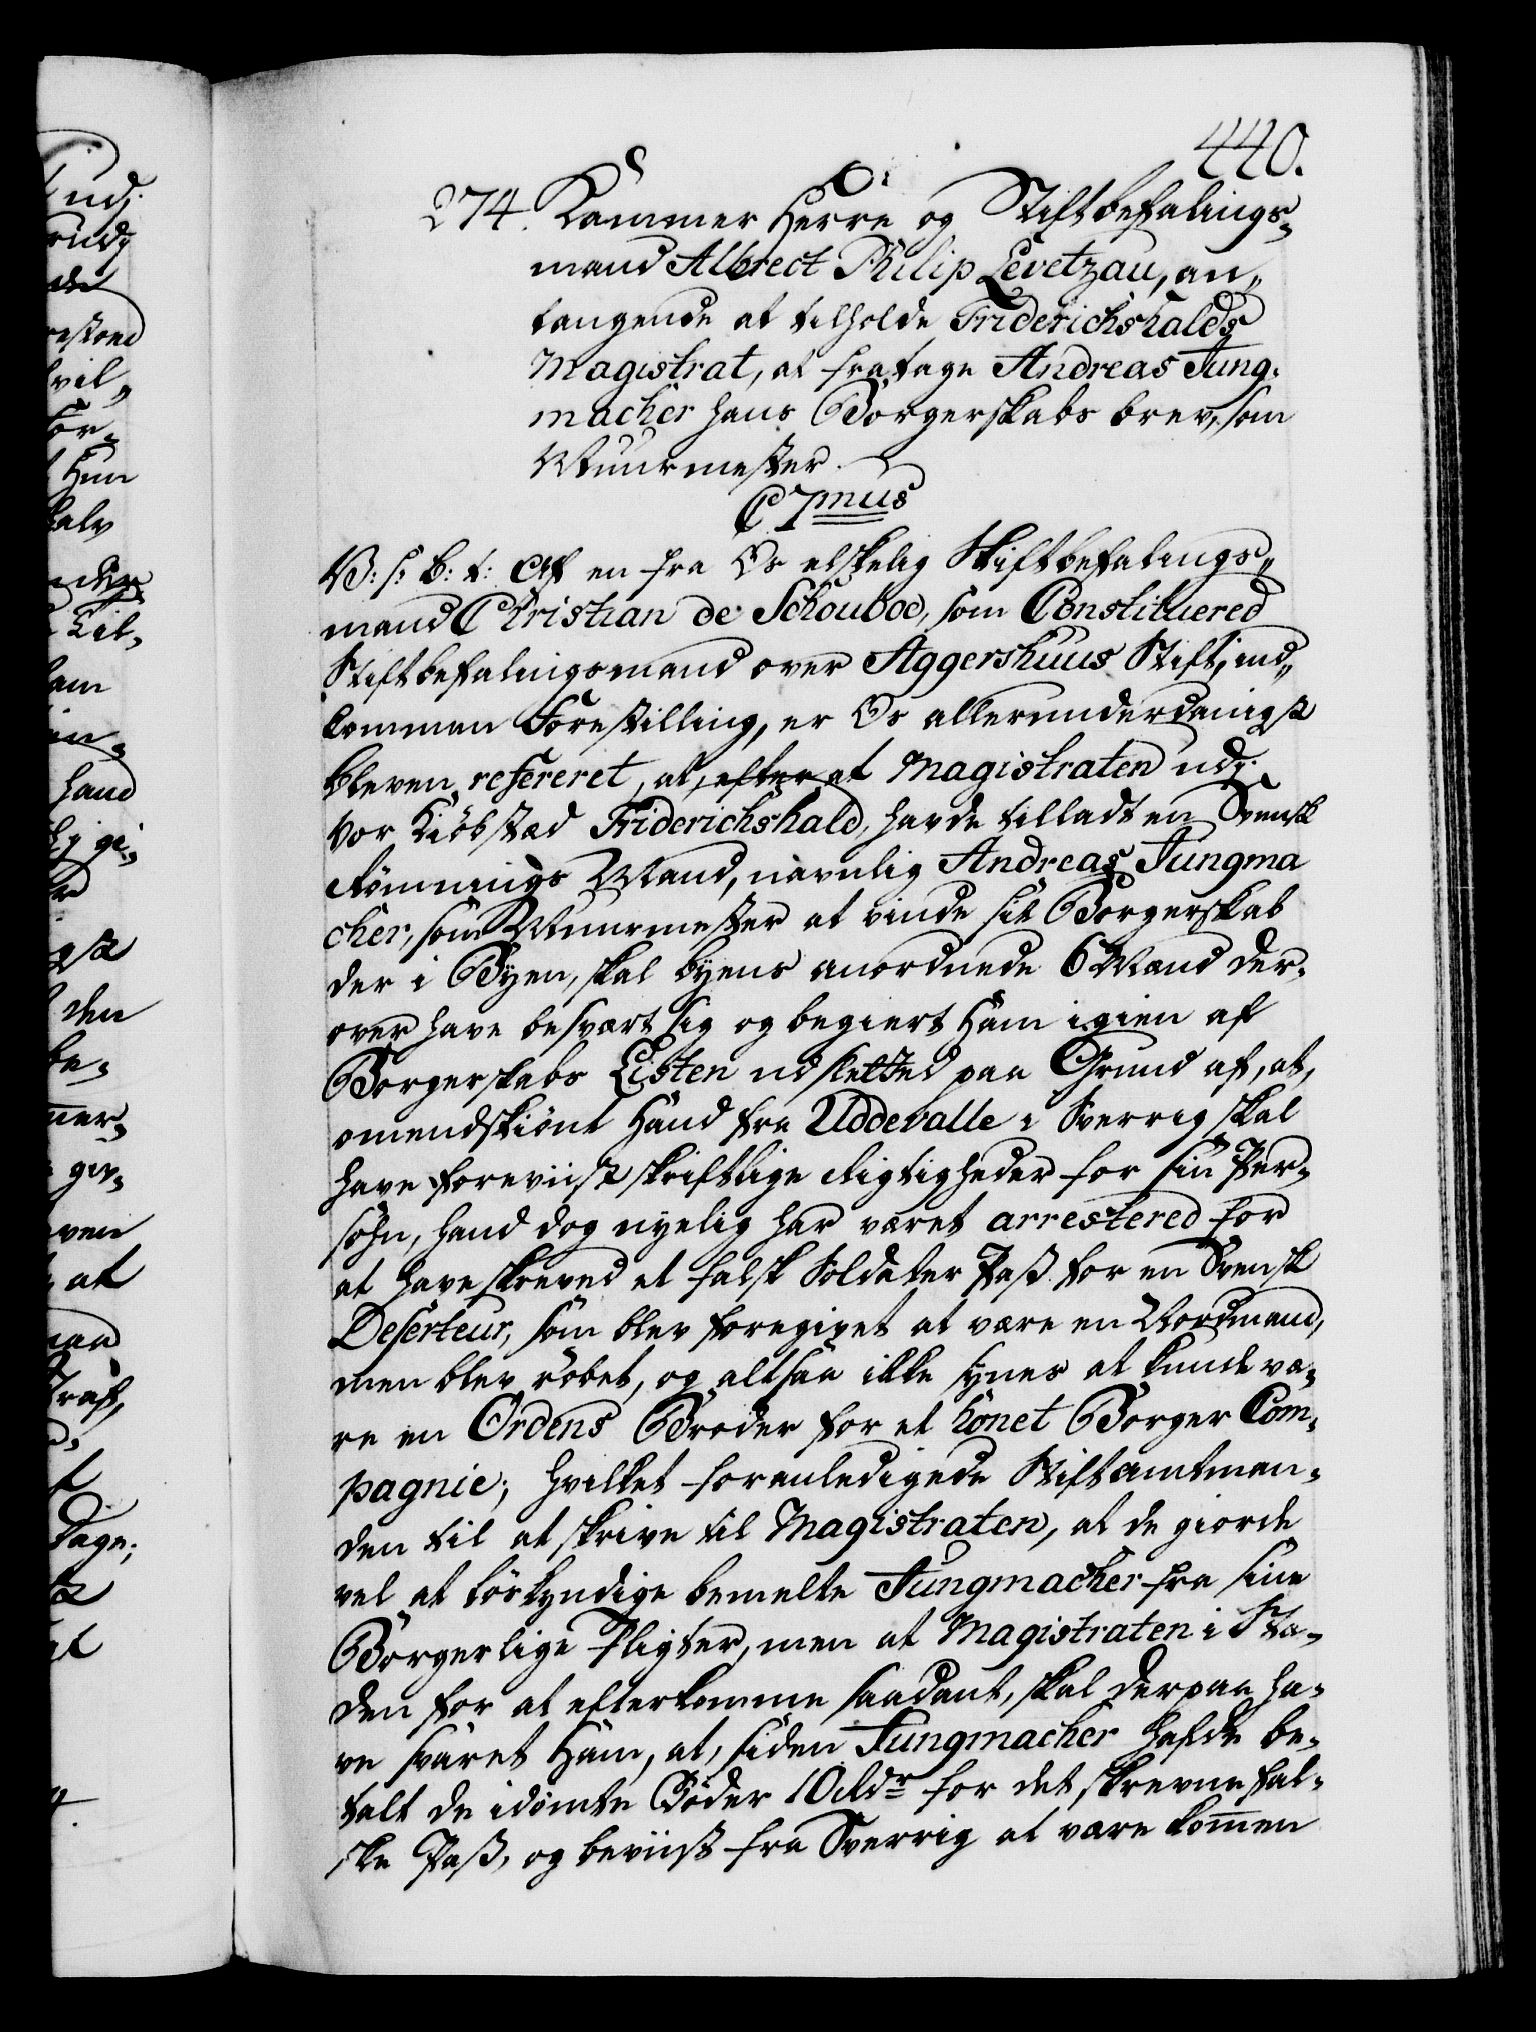 440.
274. Kammer Herre og Stiftbefalings-
mand Albrect Philip Levetzau, an-
langende at tilholde Friderichshalds
Magistrat, at fratage Andreas Jung-
macher hans Borgerskabs brev, som
Muurmester.
C 7mus
V: s: G: t: Af en fra Os elskelig Stiftbefalings-
mand Christian de Schouboe, som Constituered
Stiftbefalingsmand over Aggershuus Stift, ind-
kommen Forestilling, er Os allerunderdanigst
bleven refereret, at, efter at Magistraten udj
vor Kiöbstæd Friderichshald, havde tilladt en Svensk
Rømnings Mand, navnlig Andreas Jungma
cher, som Muurmester at vinde sit Borgerskab
der i Byen, skal byens anordnede 6 Mænd der-
over have besvært sig og begiert Ham igien af
Borgerskabs Listen udsletted paa Grund af, at,
omendskiönt Hand fra Uddevalle i Sverrig skal
have foreviist skriftlige Rigtigheder for sin Per-
sohn, hand dog nyelig har været arrestered for
at have skreved et falsk Soldater Pass for en Svensk
Deserteur, som blev foregivet at være en Nordmand,
men blev röbet, og altsaa ikke synes at kunde væ-
re en Ordens Broder for et honet Borger Com-
pagnie; hvilket foranledigede Stiftamtman-
den til at skrive til Magistraten, at de giorde
vel at forkyndige bemelte Jungmacher fra sine
Borgerlige Pligter, men at Magistraten i Stæ-
den for at efterkomme saadant, skal derpaa ha-
ve svaret Ham, at, siden Jungmacher hafde be-
talt de idömte Böder 10 Rdr for det skrevne fal-
ske Pass, og beviist fra Sverrig at være kommen